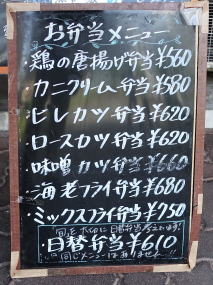 お弁当メニュー
・鶏の唐揚げ弁当¥560
・カニクリーム弁当¥580
・ヒレカツ弁当¥620
・ロースカツ弁当¥620
・味噌カツ弁当¥660
・海老フライ弁当¥680
・ミックスフライ弁当¥750
旬を大切に日替弁当
日替弁当¥610
同じメニューはありません